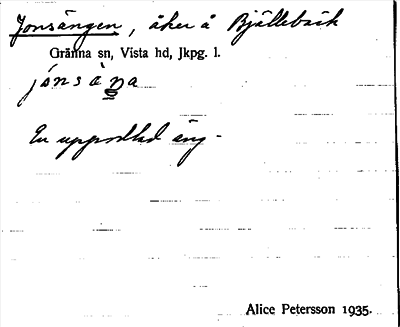 Jonsängen, åker å Bjällebäck
Gränna sn, Vista hd, Jkpg. l.
En uppodlad äng.
Alice Petersson 1935.